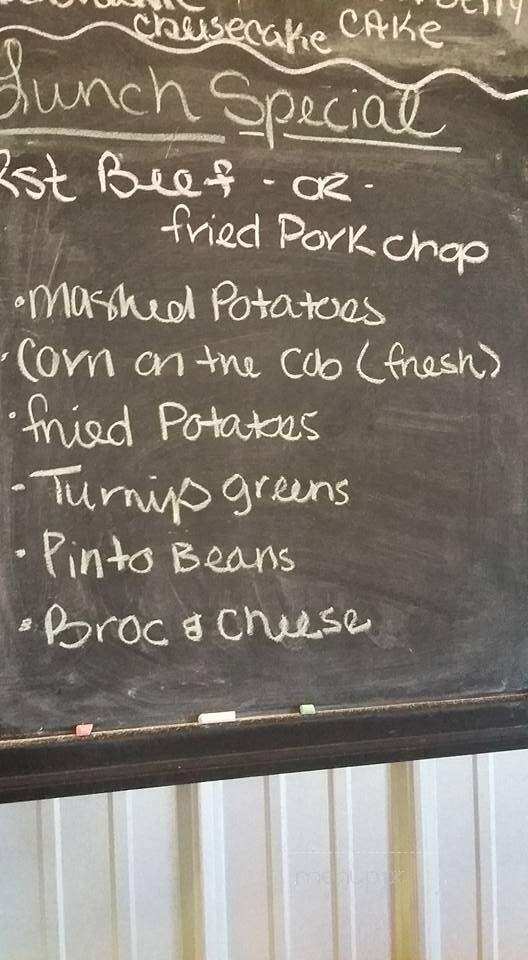 cheesecake CAKe
Lunch Special
Rst Beef - OR -
fried Pork chop
• Mashed Potatoes
• Corn on the Cob (fresh)
• fried Potatoes
- Turnip greens
• Pinto Beans
• Broc & cheese
menupix